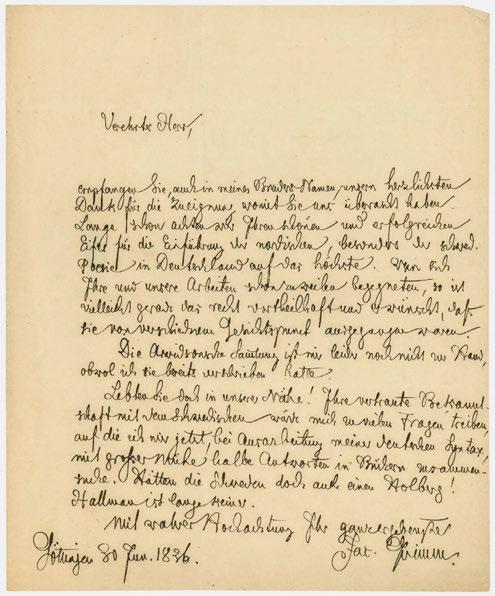 Verehrter Herr,
empfangen Sie, auch in meines Bruders Namen, unsern herzlichsten
Dank für die Zueignung, womit Sie uns überrascht haben.
Lange schon achten wir Ihren schönen und erfolgreichen
Eifer für die Einführung der nordischen, besonders der schwed.
Poesie in Deutschland auf das höchste. Wenn sich
Ihre und unsere Arbeiten schon zuweilen begegneten, so ist
vielleicht gerade das recht vortheilhaft und erwünscht, daß
sie von verschiednem Gesichtspunct ausgegangen waren.
Die Arwidsonsche Samlung ist mir leider noch nicht zur Hand,
obwol ich sie bereits verschrieben hatte.
Lebten Sie doch in unsrer Nähe! Ihre vertraute Bekannt-
schaft mit dem Schwedischen würde mich zu vielen Fragen treiben,
auf die ich mir jetzt, bei Ausarbeitung meiner deutschen Syntax,
mit großer Mühe halbe Antworten in Büchern zusammen-
suche. Hätten die Schweden doch auch einen Holberg!
Hallman ist lange keiner.
Mit wahrer Hochachtung Ihr ganz ergebenster
Göttingen 30 Jun. 1836. Jac. Grimm.